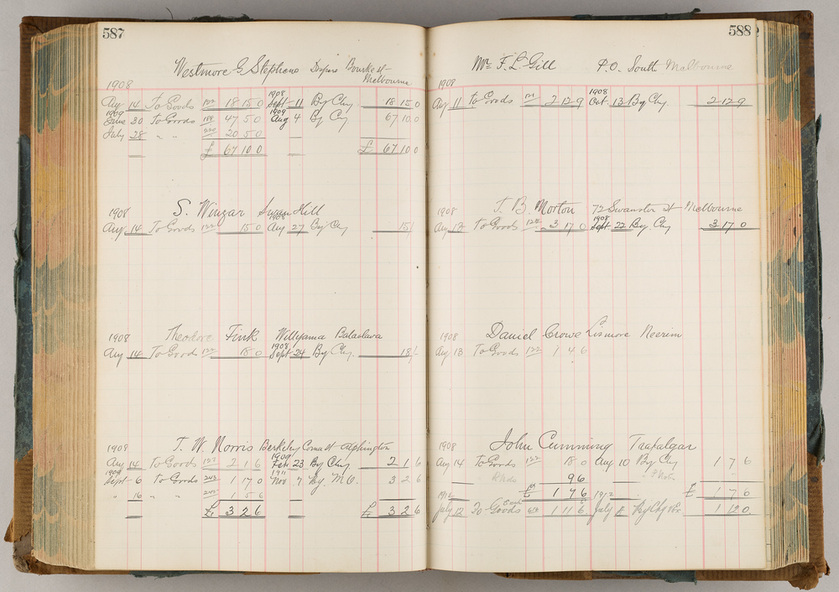 587
Westmore G Stephens Bourke st
Melbourne
1908
1908
Aug 14 To Goods 18 15 0 Sept 11 By Chq 18 15 0
1909 1909
June 30 To Goods 47 5 0 Aug 4 By Cq 67 10 0
July 28 " " 20 5 0
£ 67 10 0 £ 67 10 0
1908 S. Winzar Swan Hill
1908
Aug 14 To Goods 122 15 0 Aug 27 By Chq 15
1908 Theodore Fink Balaclava
1908
Aug 14 To Goods 122 18 0 Sept 24 By Chq 18
1908 T. W. Norris Alphington
1909
Aug 14 To Goods 2 1 6 Feb 23 By Chq 2 1 6
1909 1911
Sept 6 To Goods 1 17 0 Nov 7 By 3 2 6
" 16 " 1 5 6
£ 3 2 6 £ 3 2 6
588
Mr F. L. Gill P.O. South Melbourne
1908
1908
Aug 11 To Goods 2 12 9 Oct 13 By Chq 2 12 9
1908 T. B. Morton 72 Swanston st Melbourne
1908
Aug 13 To Goods 122 3 17 0 Sept 22 By Chq 3 17 0
1908 Daniel Crowe Lismore Noorim
Aug 13 To Goods 122 1 4 6
1908 John Cumming Trafalgar
Aug 14 To Goods 122 18 0 Aug 10 By Chq 1 7 6
9 6
£ 1 7 6 £ 1 7 6
July 12 To Goods 1 11 6 July 8 By Chq 1 12 0